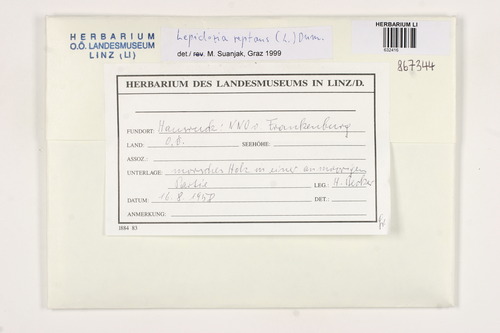 HERBARIUM
O.Ö. LANDESMUSEUM
LINZ (LI)
Lepidozia reptans (L.) Dum.
det./ rev. M. Suanjak, Graz 1999
HERBARIUM LI
632416
867344
HERBARIUM DES LANDESMUSEUMS IN LINZ/D.
FUNDORT: Hausruck: NNO v. Frankenburg
LAND: O.Ö. SEEHÖHE:
ASSOZ.:
UNTERLAGE: morsches Holz an einer anmoorigen
Stelle LEG.: H. Becker
DATUM: 16. 8. 1958 DET.:
ANMERKUNG:
1884 83